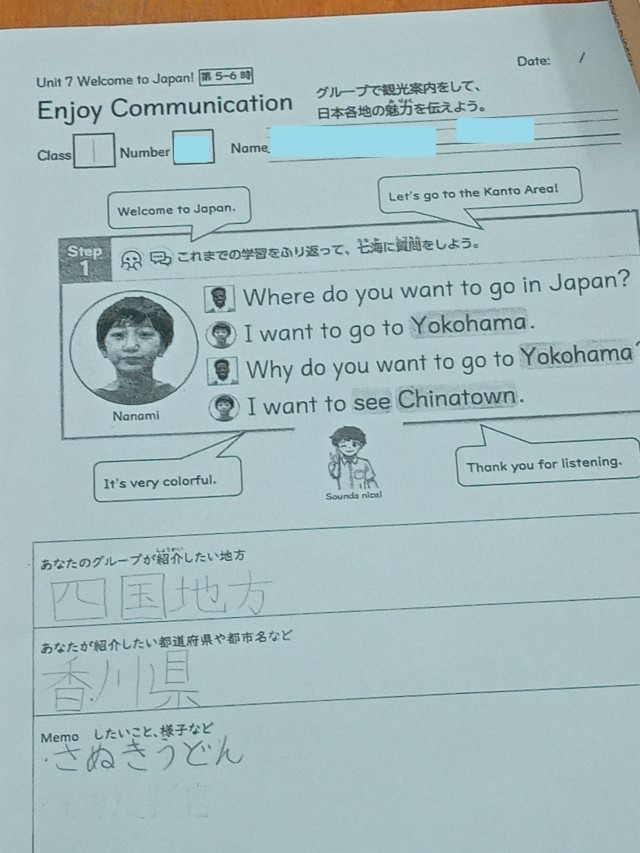 Date: /
Unit 7 Welcome to Japan! 第5-6時
Enjoy Communication
グループで観光案内をして、
日本各地の魅力を伝えよう。
Class 1 Number Name
Welcome to Japan.
Let's go to the Kanto Area!
Step 1 これまでの学習をふり返って、七海に質問をしよう。
Where do you want to go in Japan?
I want to go to Yokohama.
Why do you want to go to Yokohama?
I want to see Chinatown.
Nanami
It's very colorful.
Thank you for listening.
Sounds nice!
あなたのグループが紹介したい地方
四国地方
あなたが紹介したい都道府県や都市名など
香川県
Memo したいこと、様子など
・さぬきうどん